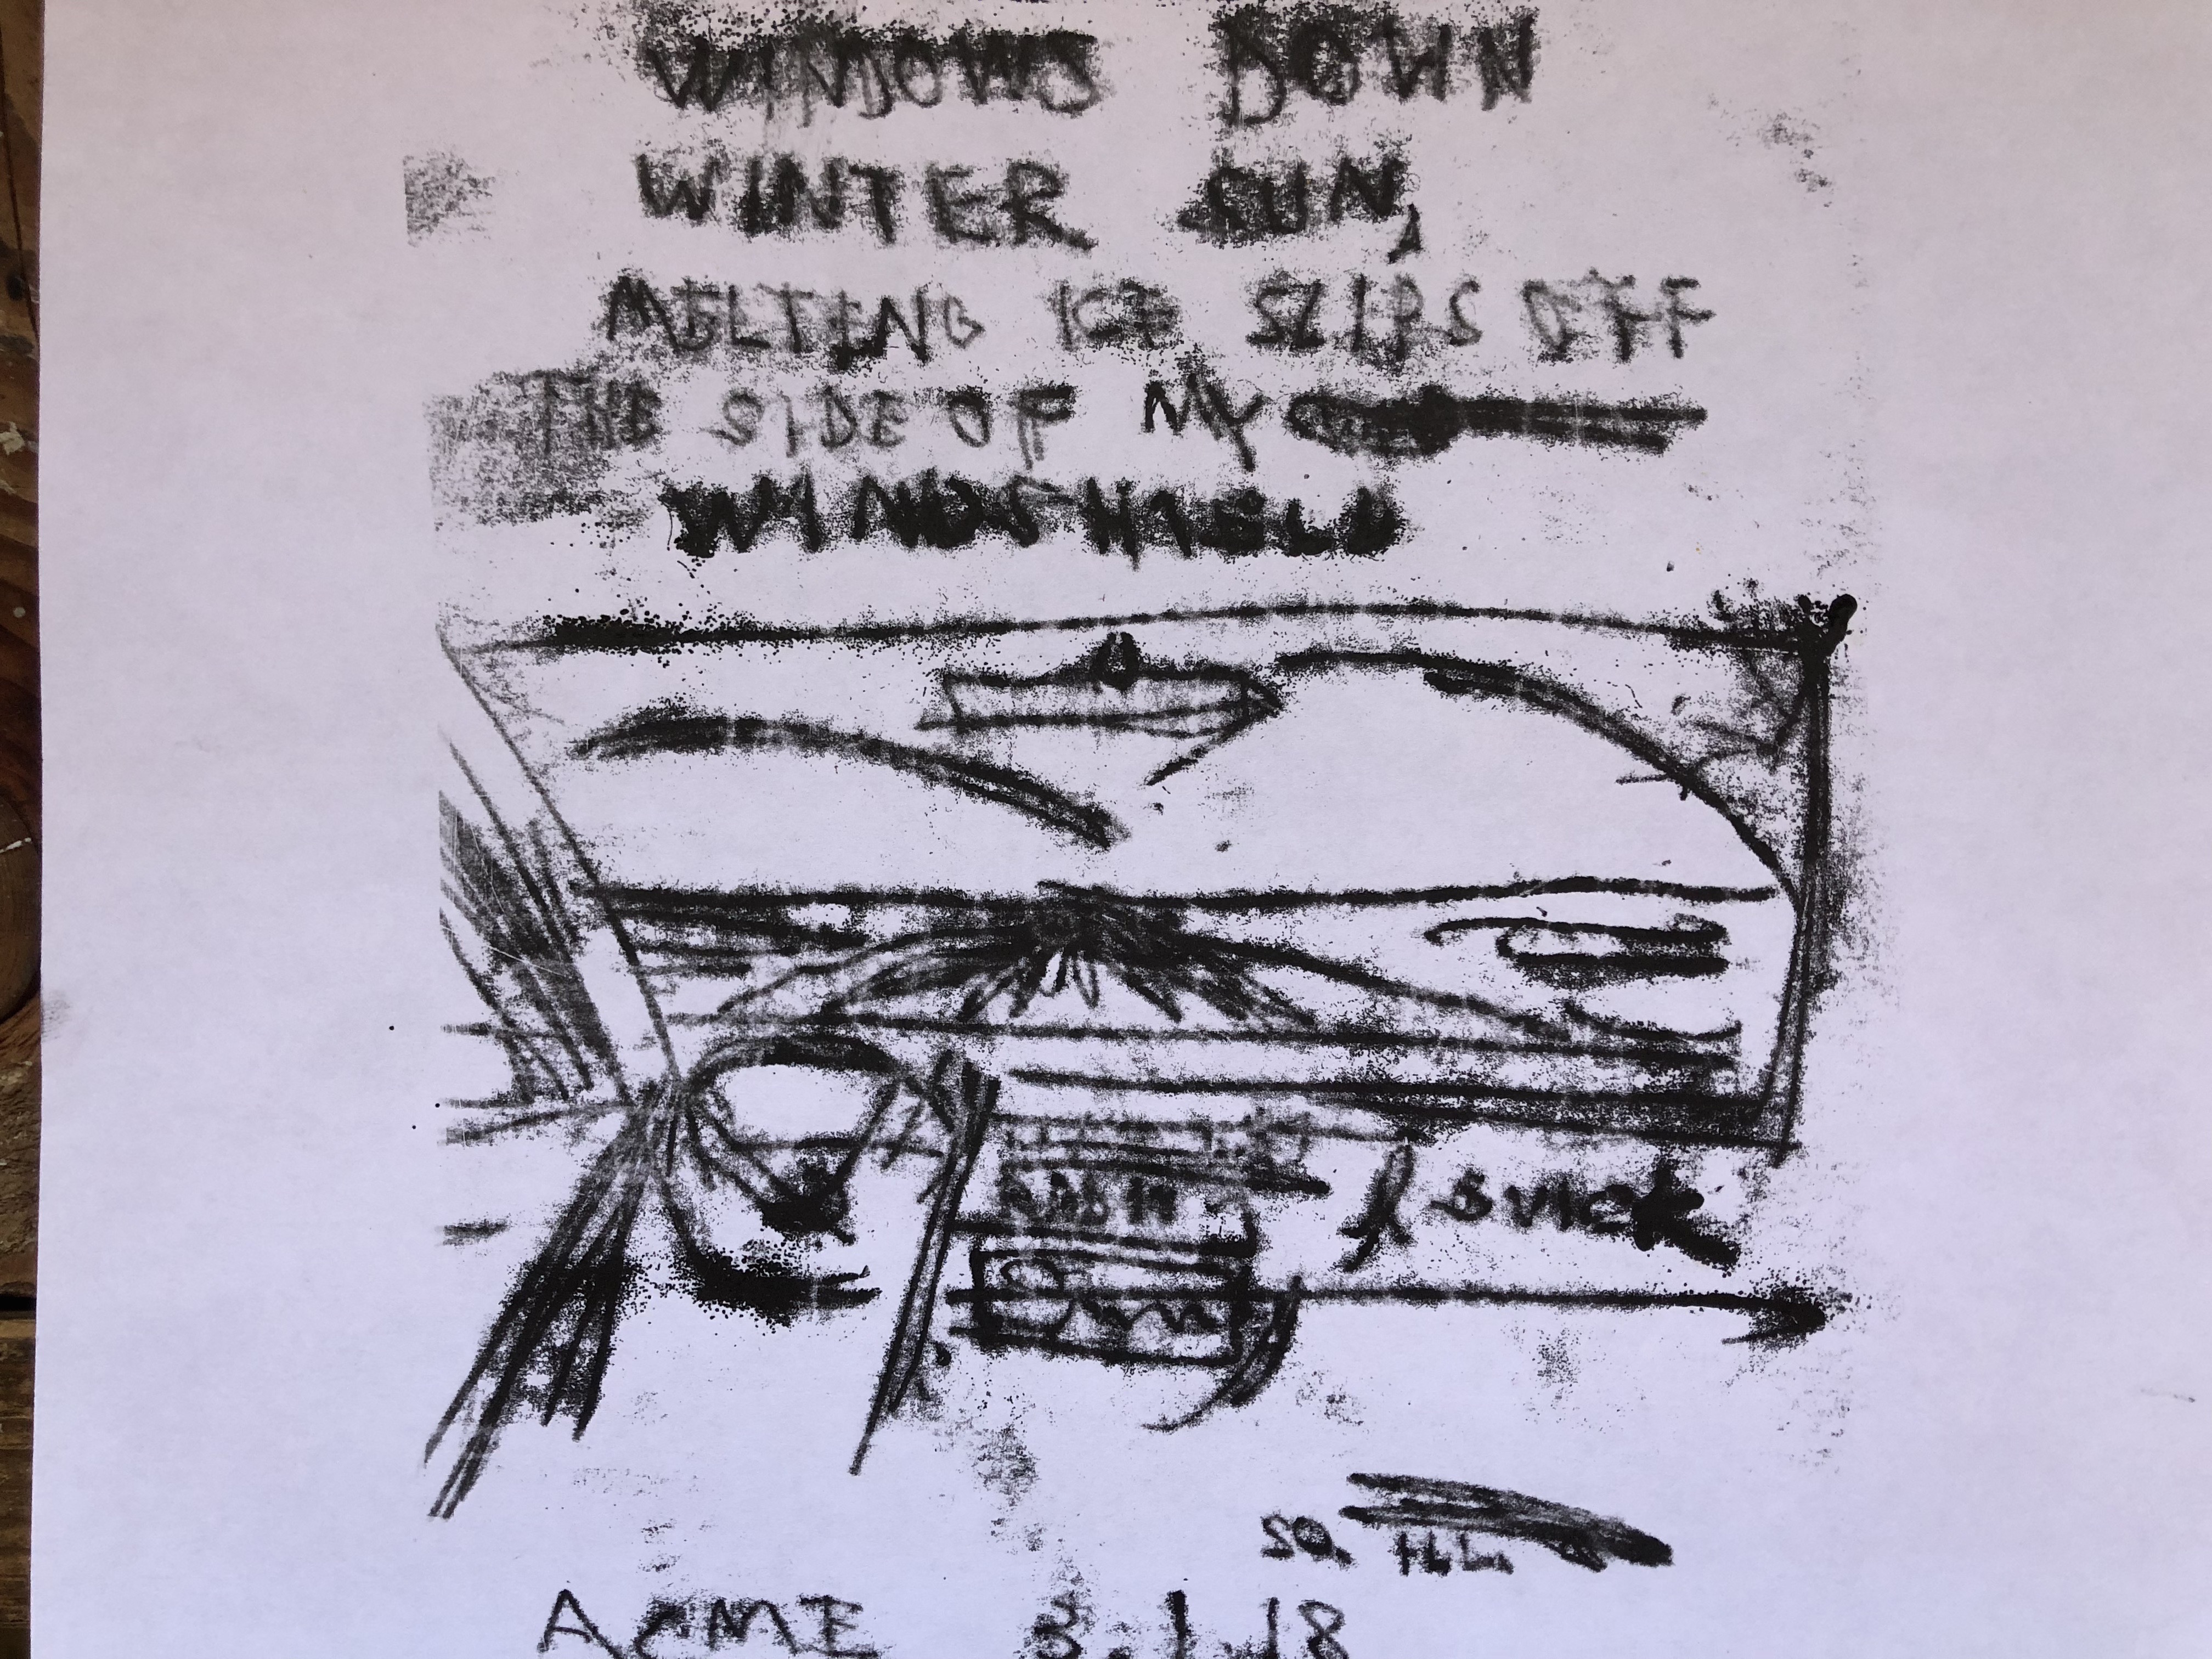 WINDOWS DOWN
WINTER SUN,
MELTING ICE SLIPS OFF
THE SIDE OF MY
WINDSHIELD
BUICK
SO. ILL.
ACME 3.1.18